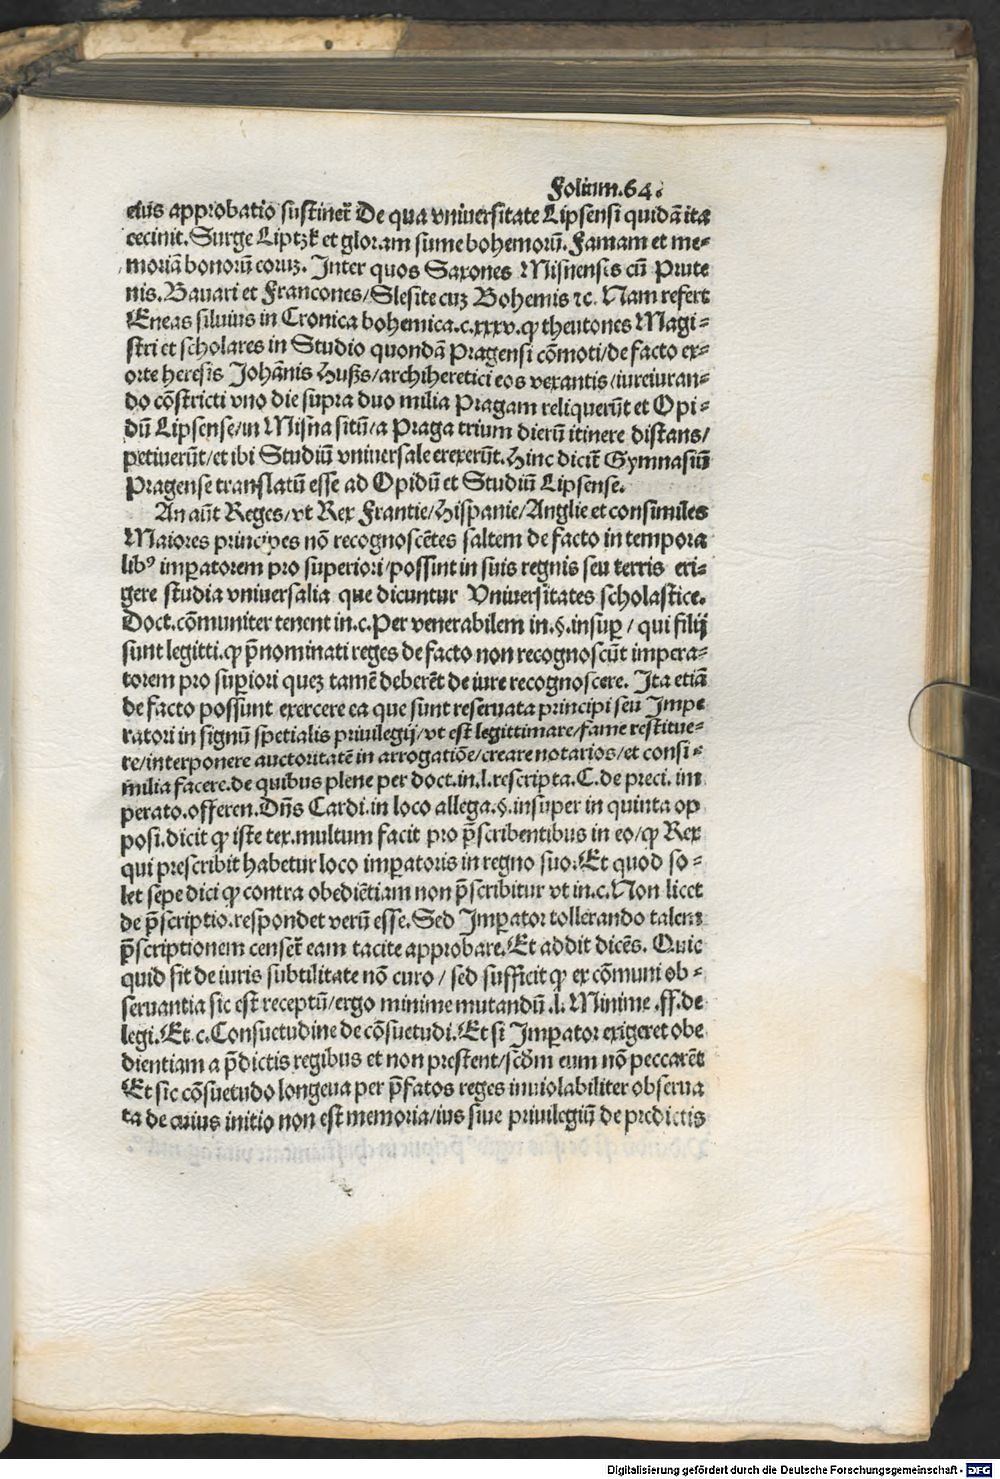 Folium.64.
eius approbatio sustinet̃ De qua vniuersitate Lipsensi quidã ita
cecinit. Surge Liptzk et gloram sume bohemorũ. Famam et me⸗
moriã bonorũ coruꝫ. Inter quos Saxones Misnensis cũ Prute
nis. Bauari et Francones/Slesite cuꝫ Bohemis ⁊c. Nam refert
Eneas siluius in Cronica bohemica.c.xxxv.ꝙ theutones Magi⸗
stri et scholares in Studio quondã Pragensi cõmoti/de facto ex⸗
orte heresis Johãnis Hußs/archiheretici eos vexantis/iureiuran⸗
do cõstricti vno die supra duo milia Pragam reliquerũt et Opi⸗
dũ Lipsense/in Misna sitũ/a Praga trium dierũ itinere distans/
petiuerũt/et ibi Studiũ vniuersale erexerũt. Hinc dicit̃ Gymnasiũ
Pragense translatũ esse ad Opidũ et Studiũ Lipsense.
An aũt Reges/vt Rex Frantie/Hispanie/Anglie et consimiles
Maiores principes nõ recognoscẽtes saltem de facto in tempora
libꝰ imꝑatorem pro superiori/possint in suis regnis seu terris eri⸗
gere studia vniuersalia que dicuntur Vniuersitates scholastice.
Doct.cõmuniter tenent in.c.Per venerabilem in.§.insuꝑ/qui filij
sunt legitti.ꝙ p̃nominati reges de facto non recognoscũt impera⸗
torem pro suꝑiori queꝫ tamẽ deberẽt de iure recognoscere. Ita etiã
de facto possunt exercere ea que sunt reseruata principi seu Impe
ratori in signũ spetialis priuilegij/vt est legittimare/fame restitue⸗
re/interponere auctoritatẽ in arrogatiõe/creare notarios/et consi⸗
milia facere.de quibus plene per doct.in.l.rescripta.C.de preci.im
perato.offeren.Dñs Cardi.in loco allega.§.insuper in quinta op
posi.dicit ꝙ iste tex.multum facit pro p̃scribentibus in eo/ꝙ Rex
qui prescribit habetur loco imꝑatoris in regno suo.Et quod so⸗
let sepe dici ꝙ contra obediẽtiam non p̃scribitur vt in.c.Non licet
de p̃scriptio.respondet verũ esse. Sed Imꝑator tollerando talem
p̃scriptionem censet̃ eam tacite approbare.Et addit dicẽs. Quic
quid sit de iuris subtilitate nõ curo/sed sufficit ꝙ ex cõmuni ob⸗
seruantia sic est receptũ/ergo minime mutandũ.l.Minime.ff.de
legi.Et c.Consuetudine de cõsuetudi.Et si Imꝑator exigeret obe
dientiam a p̃dictis regibus et non prestent/scðm eum nõ peccarẽt
Et sic cõsuetudo longeua per p̃fatos reges inuiolabiliter obserua
ta de cuius initio non est memoria/ius siue priuilegiũ de predictis
Digitalisierung gefördert durch die Deutsche Forschungsgemeinschaft - DFG